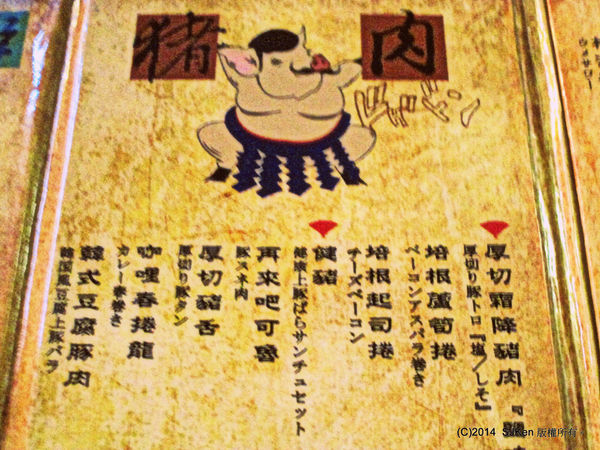 猪肉
ドドドン
厚切霜降豬肉『鹽
厚切り豚トロ『塩/しそ』
培根蘆筍捲
ベーコンアスパラ巻き
培根起司捲
チーズベーコン
健豬
健康上豚ばらサンチュセット
再來吧可魯
豚スネ肉
厚切豬舌
厚切り豚タン
咖哩春捲龍
カレー春巻き
韓式豆腐豚肉
韓国風豆腐上豚バラ
ウメサワー
(C)2014 SuKen 版權所有